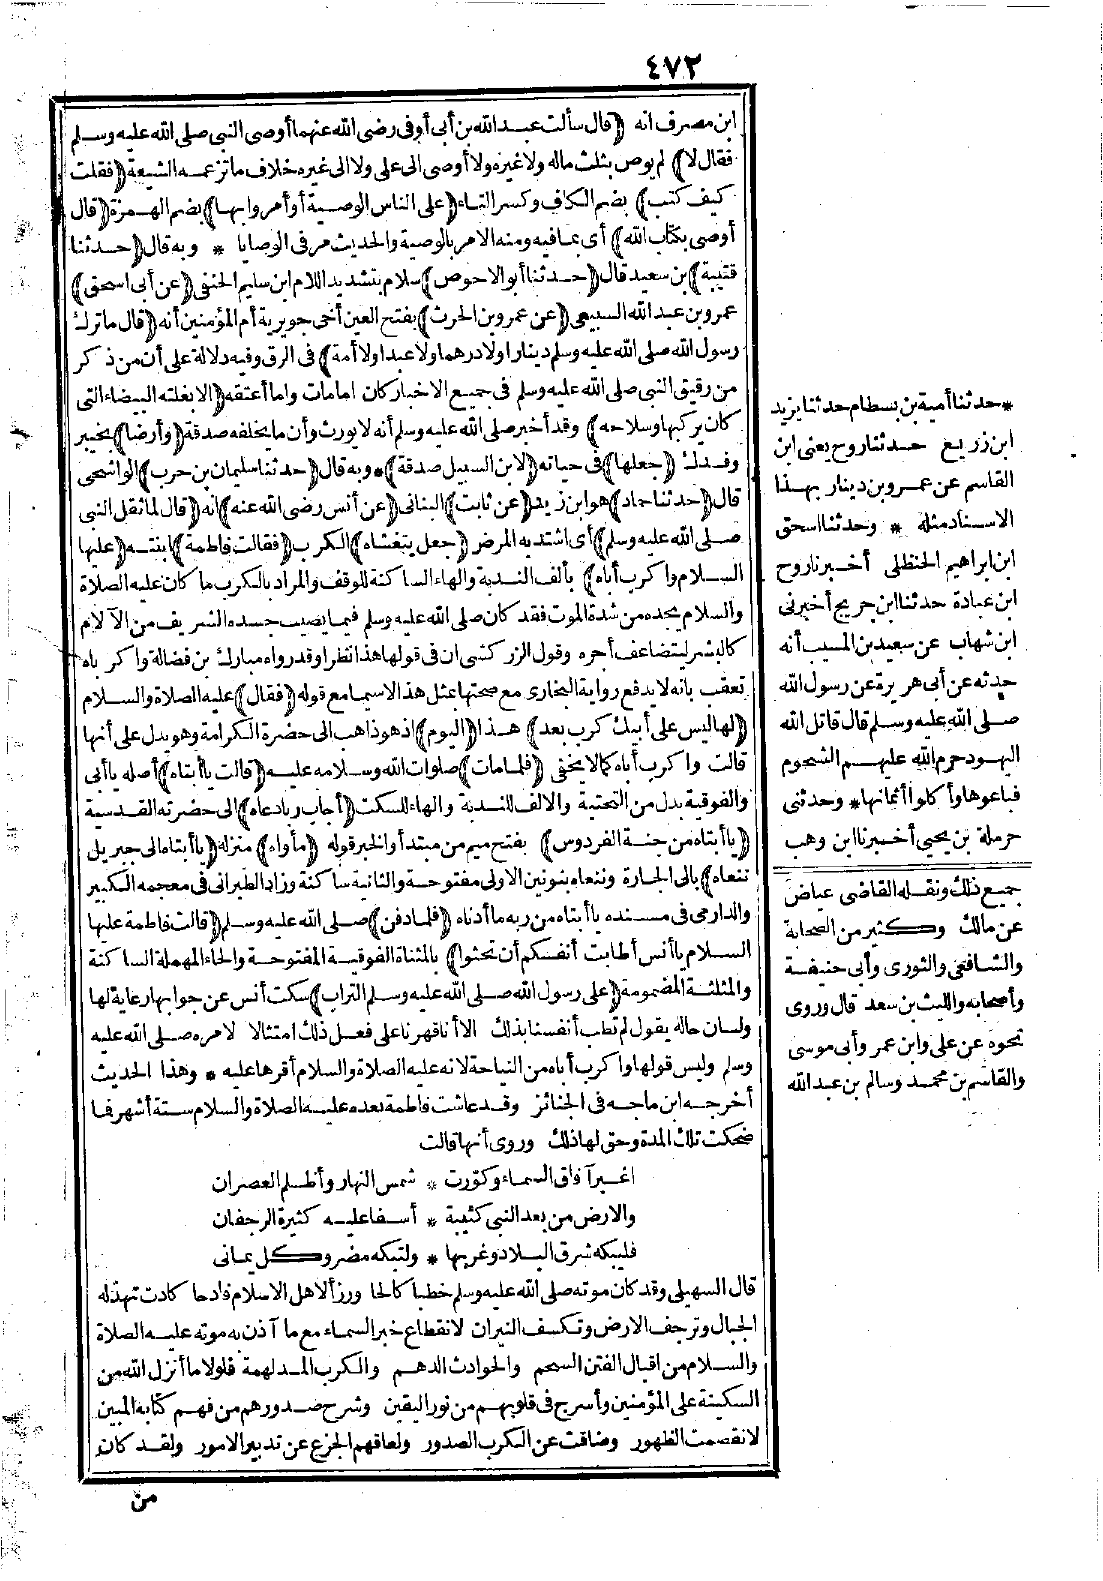 ٤٧٢
ابن مصرف انه ﴿قال سألت عبد الله بن أبي أوفى رضي الله عنهما أوصى النبي صلى الله عليه وسلم
فقال لا﴾ لم يوص بثلث ماله ولا غيره ولا أوصى الى علي ولا الى غيره خلاف ما تزعمه الشيعة ﴿فقلت
كيف كتب﴾ بضم الكاف وكسر التاء ﴿على الناس الوصية أو أمروا بها﴾ بضم الهمزة ﴿قال
أوصى بكتاب الله﴾ أي بما فيه ومنه الامر بالوصية والحديث مر في الوصايا * وبه قال ﴿حدثنا
قتيبة﴾ بن سعيد قال ﴿حدثنا أبو الاحوص﴾ سلام بتشديد اللام ابن سليم الحنفي ﴿عن أبي اسحق﴾
عمرو بن عبد الله السبيعي ﴿عن عمرو بن الحرث﴾ بفتح العين أخي جويرية أم المؤمنين أنه ﴿قال ما ترك
رسول الله صلى الله عليه وسلم دينارا ولا درهما ولا عبدا ولا أمة﴾ في الرق وفيه دلالة على أن من ذكر
من رقيق النبي صلى الله عليه وسلم في جميع الاخبار كان اما مات واما أعتقه ﴿الا بغلته البيضاء التي
كان يركبها وسلاحه﴾ وقد أخبر صلى الله عليه وسلم أنه لا يورث وأن ما يخلفه صدقة ﴿وأرضا﴾ بخيبر
وفدك ﴿جعلها﴾ في حياته ﴿لابن السبيل صدقة﴾ * وبه قال ﴿حدثنا سليمان بن حرب﴾ الواشحي
قال ﴿حدثنا حماد﴾ هو ابن زيد ﴿عن ثابت﴾ البناني ﴿عن أنس رضي الله عنه﴾ انه ﴿قال لما ثقل النبي
صلى الله عليه وسلم﴾ أي اشتد به المرض ﴿جعل يتغشاه﴾ الكرب ﴿فقالت فاطمة﴾ ابنته ﴿عليها
السلام واكرب أباه﴾ بألف الندبة والهاء الساكنة للوقف والمراد بالكرب ما كان عليه الصلاة
والسلام يجده من شدة الموت فقد كان صلى الله عليه وسلم فيما يصيب جسده الشريف من الآلام
كالبشر ليتضاعف أجره وقول الزركشي ان في قولها هذا نظرا وقد رواه مبارك بن فضالة واكرباه
تعقب بانه لا يدفع رواية البخاري مع صحتها بمثل هذا لاسيما مع قوله ﴿فقال﴾ عليه الصلاة والسلام
﴿لها ليس على أبيك كرب بعد﴾ هذا ﴿اليوم﴾ اذ هو ذاهب الى حضرة الكرامة وهو يدل على أنها
قالت واكرب أباه كما لا يخفى ﴿فلما مات﴾ صلوات الله وسلامه عليه ﴿قالت يا أبتاه﴾ أصله يا أبي
والفوقية بدل من التحتية والالف للندبة والهاء للسكت ﴿أجاب ربا دعاه﴾ الى حضرته القدسية
﴿يا أبتاه من جنة الفردوس﴾ بفتح ميم من مبتدأ والخبر قوله ﴿مأواه﴾ منزله ﴿يا أبتاه الى جبريل
ننعاه﴾ بالى الجارة وننعاه بنونين الاولى مفتوحة والثانية ساكنة وزاد الطبراني في معجمه الكبير
والدارمي في مسنده يا أبتاه من ربه ما أدناه ﴿فلما دفن﴾ صلى الله عليه وسلم ﴿قالت فاطمة عليها
السلام يا أنس أطابت أنفسكم أن تحثوا﴾ بالمثناة الفوقية المفتوحة والحاء المهملة الساكنة
والمثلثة المضمومة ﴿على رسول الله صلى الله عليه وسلم التراب﴾ سكت أنس عن جوابها رعاية لها
ولسان حاله يقول لم تطب أنفسنا بذلك الا أنا قهرنا على فعل ذلك امتثالا لامره صلى الله عليه
وسلم وليس قولها واكرب أباه من النياحة لانه عليه الصلاة والسلام أقرها عليه * وهذا الحديث
أخرجه ابن ماجه في الجنائز وقد عاشت فاطمة بعده عليه الصلاة والسلام ستة أشهر فما
ضحكت تلك المدة وحق لها ذلك وروي أنها قالت
اغبر آفاق السماء وكورت * شمس النهار وأظلم العصران
والارض من بعد النبي كئيبة * أسفا عليه كثيرة الرجفان
فليبكه شرق البلاد وغربها * ولتبكه مضر وكل يماني
قال السهيلي وقد كان موته صلى الله عليه وسلم خطبا كالحا ورزأ لاهل الاسلام فادحا كادت تهد له
الجبال وترجف الارض وتكسف النيران لانقطاع خبر السماء مع ما آذن به موته عليه الصلاة
والسلام من اقبال الفتن السحم والحوادث الدهم والكرب المدلهمة فلولا ما أنزل الله من
السكينة على المؤمنين وأسرج في قلوبهم من نور اليقين وشرح صدورهم من فهم كتابه المبين
لانقصمت الظهور وضاقت عن الكرب الصدور ولعاقهم الجزع عن تدبير الامور ولقد كان
من
* حدثنا أمية بن بسطام حدثنا يزيد
ابن زريع حدثنا روح يعني ابن
القاسم عن عمرو بن دينار بهذا
الاسناد مثله * وحدثنا اسحق
ابن ابراهيم الحنظلي أخبرنا روح
ابن عبادة حدثنا ابن جريج أخبرني
ابن شهاب عن سعيد بن المسيب أنه
حدثه عن أبي هريرة عن رسول الله
صلى الله عليه وسلم قال قاتل الله
اليهود حرم الله عليهم الشحوم
فباعوها وأكلوا أثمانها * وحدثني
حرملة بن يحيى أخبرنا ابن وهب
جميع ذلك ونقله القاضي عياض
عن مالك وكثير من الصحابة
والشافعي والثوري وأبي حنيفة
وأصحابه والليث بن سعد قال وروي
نحوه عن علي وابن عمر وأبي موسى
والقاسم بن محمد وسالم بن عبد الله